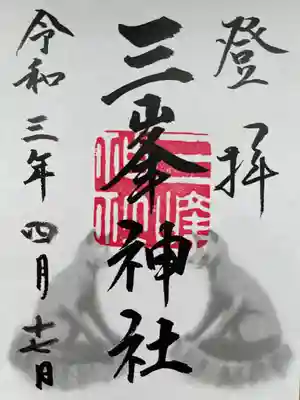 登拝
三峯神社
令和三年四月十七日